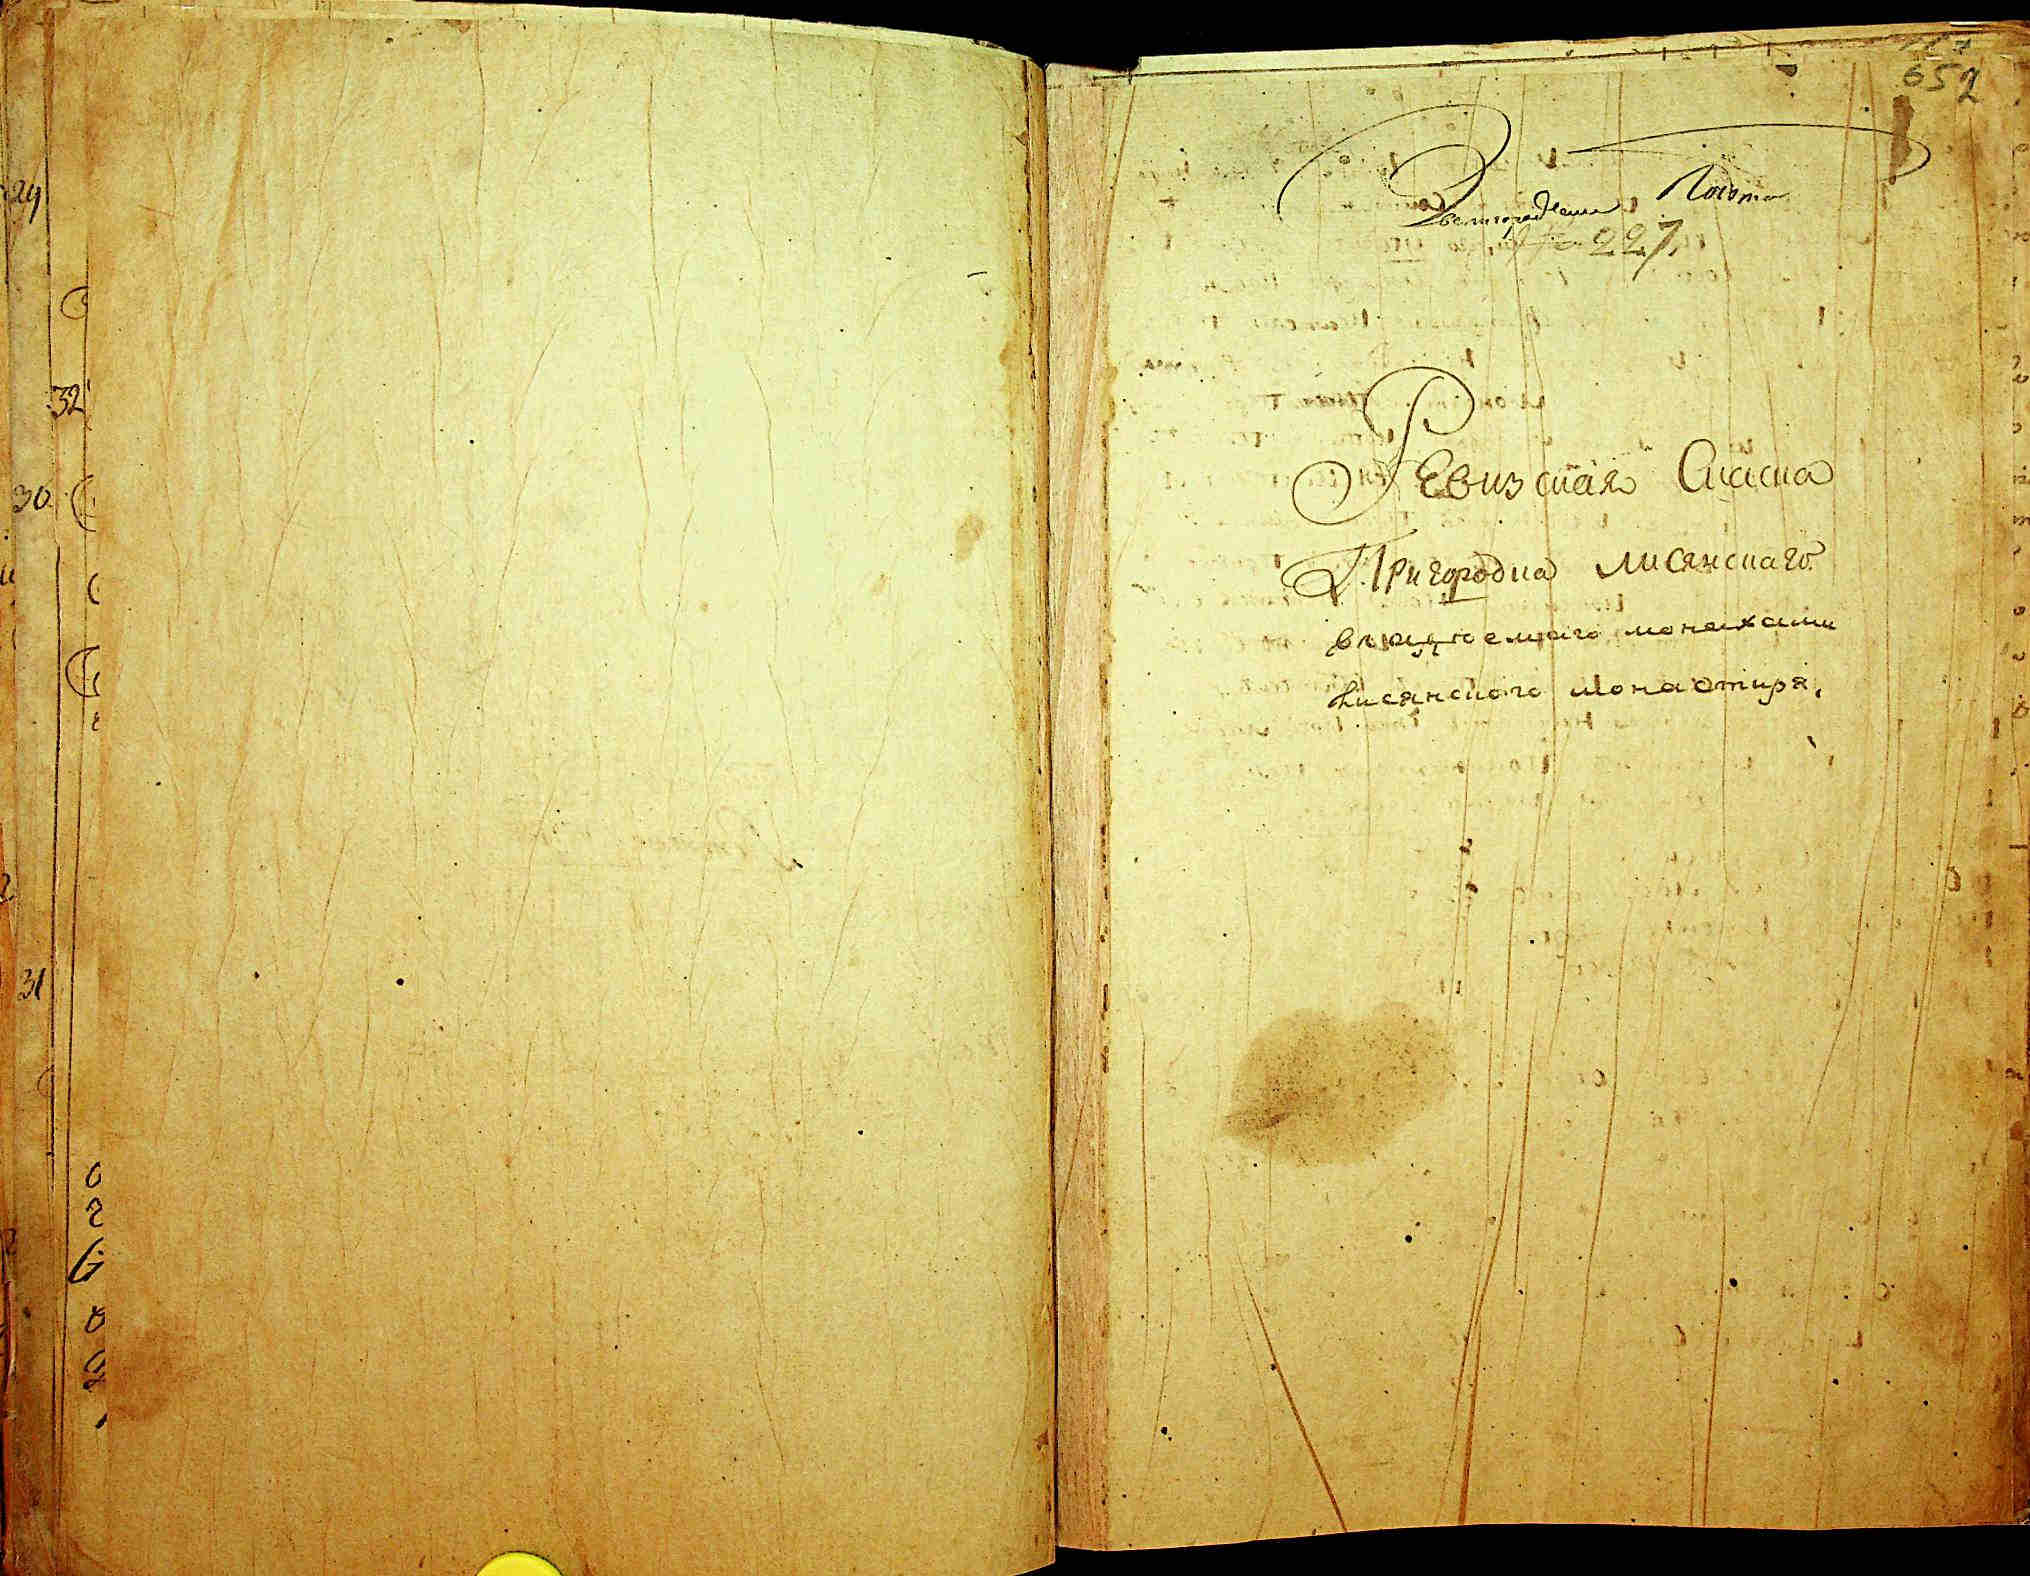 29
32
30
31
652
Звенигородчани Повета
№ 227.
Ревизская Сказка
Пригородка Лисянскаго
владеемаго монахами
Лисянского монастиря.